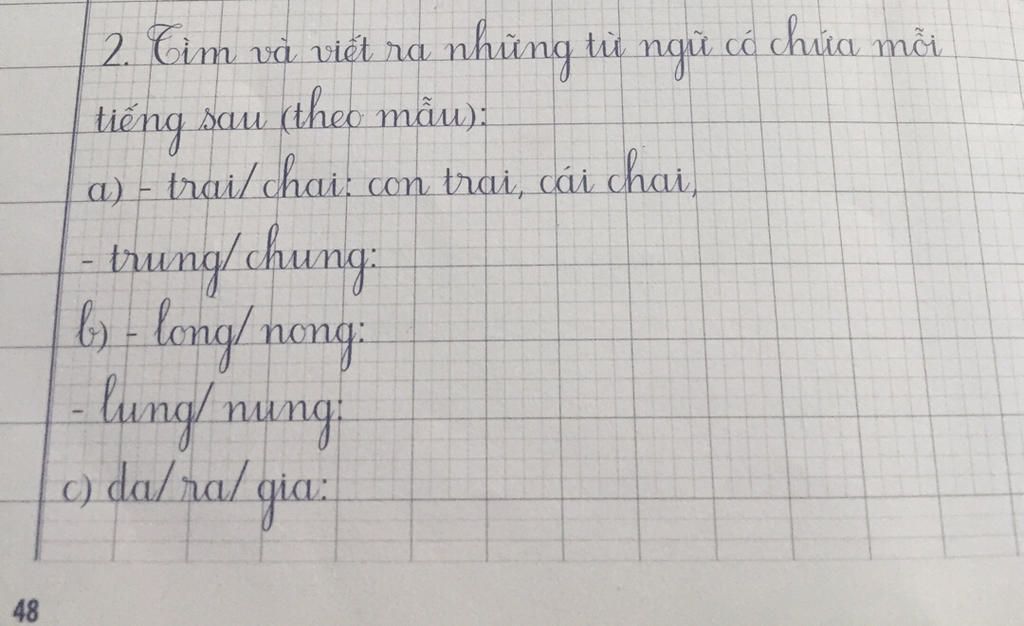 2. Tìm và viết ra những từ ngữ có chứa mỗi
tiếng sau (theo mẫu):
a) - trai/ chai: con trai, cái chai,
- trung/ chung:
b) - long/ nong:
- lung/ nung:
c) da/ ra/ gia:
48